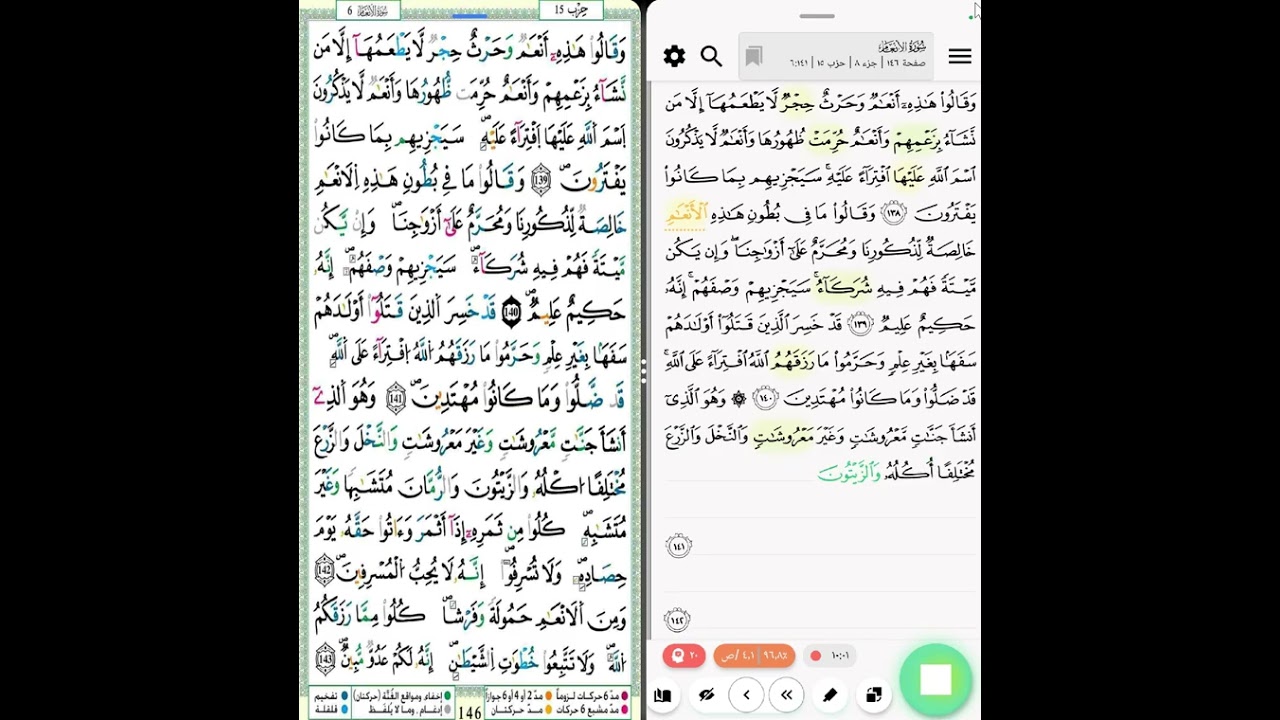 حِزْب 15
سُورَةُ الأَنْعَام 6
وَقَالُوا۟ هَٰذِهِۦٓ أَنْعَٰمٌ وَحَرْثٌ حِجْرٌ لَّا يَطْعَمُهَآ إِلَّا مَن
نَّشَآءُ بِزَعْمِهِمْ وَأَنْعَٰمٌ حُرِّمَت ظُّهُورُهَا وَأَنْعَٰمٌ لَّا يَذْكُرُونَ
اَسْمَ اَ۬للَّهِ عَلَيْهَا اَ۪فْتِرَآءً عَلَيْهِ سَيَجْزِيهِم بِمَا كَانُوا۟
يَفْتَرُونَ 139 وَقَالُوا۟ مَا فِى بُطُونِ هَٰذِهِ اِ۬لَانْعَٰمِ
خَالِصَةٌ لِّذُكُورِنَا وَمُحَرَّمٌ عَلَىٰٓ أَزْوَٰجِنَا وَإِن يَّكُن
مَّيْتَةً فَهُمْ فِيهِ شُرَكَآءُ سَيَجْزِيهِمْ وَصْفَهُمْ إِنَّهُۥ
حَكِيمٌ عَلِيمٌ 140 قَدْ خَسِرَ اَ۬لذِينَ قَتَلُوٓا۟ أَوْلَٰدَهُمْ
سَفَهَۢا بِغَيْرِ عِلْمٍ وَحَرَّمُوا۟ مَا رَزَقَهُمُ اُ۬للَّهُ اُ۪فْتِرَآءً عَلَى اَ۬للَّهِ
قَد ضَّلُّوا۟ وَمَا كَانُوا۟ مُهْتَدِينَ 141 وَهُوَ اَ۬لذِىٓ
أَنشَأَ جَنَّٰتٍ مَّعْرُوشَٰتٍ وَغَيْرَ مَعْرُوشَٰتٍ وَالنَّخْلَ وَالزَّرْعَ
مُخْتَلِفًا ا۟كْلُهُۥ وَالزَّيْتُونَ وَالرُّمَّانَ مُتَشَٰبِهًا وَغَيْرَ
مُتَشَٰبِهٍ كُلُوا۟ مِن ثَمَرِهِۦٓ إِذَآ أَثْمَرَ وَءَاتُوا۟ حَقَّهُۥ يَوْمَ
حِصَادِهِۦ وَلَا تُسْرِفُوٓا۟ إِنَّهُۥ لَا يُحِبُّ اُ۬لْمُسْرِفِينَ 142
وَمِنَ اَ۬لَانْعَٰمِ حَمُولَةً وَفَرْشًا كُلُوا۟ مِمَّا رَزَقَكُمُ
اُ۬للَّهُ وَلَا تَتَّبِعُوا۟ خُطْوَٰتِ اِ۬لشَّيْطَٰنِ إِنَّهُۥ لَكُمْ عَدُوٌّ مُّبِينٌ 143
مدّ 6 حركات لزوماً مدّ 2 أو 4 أو 6 جوازاً إخفاء، ومواقع الغُنَّة (حركتان) تفخيم
مدّ مشبع 6 حركات مدّ حركتان إدغام، وما لا يُلفَظ قلقلة
146
سُورَةُ الأَنْعَامِ
صفحة ١٤٦ | جزء ٨ | حزب ١٥ | ٦:١٤١
وَقَالُوا۟ هَٰذِهِۦٓ أَنْعَٰمٌ وَحَرْثٌ حِجْرٌ لَّا يَطْعَمُهَآ إِلَّا مَن
نَّشَآءُ بِزَعْمِهِمْ وَأَنْعَٰمٌ حُرِّمَتْ ظُهُورُهَا وَأَنْعَٰمٌ لَّا يَذْكُرُونَ
ٱسْمَ ٱللَّهِ عَلَيْهَا ٱفْتِرَآءً عَلَيْهِ ۚ سَيَجْزِيهِم بِمَا كَانُوا۟
يَفْتَرُونَ ١٣٨ وَقَالُوا۟ مَا فِى بُطُونِ هَٰذِهِ ٱلْأَنْعَٰمِ
خَالِصَةٌ لِّذُكُورِنَا وَمُحَرَّمٌ عَلَىٰٓ أَزْوَٰجِنَا ۖ وَإِن يَكُن
مَّيْتَةً فَهُمْ فِيهِ شُرَكَآءُ ۚ سَيَجْزِيهِمْ وَصْفَهُمْ ۚ إِنَّهُۥ
حَكِيمٌ عَلِيمٌ ١٣٩ قَدْ خَسِرَ ٱلَّذِينَ قَتَلُوٓا۟ أَوْلَٰدَهُمْ
سَفَهًۢا بِغَيْرِ عِلْمٍ وَحَرَّمُوا۟ مَا رَزَقَهُمُ ٱللَّهُ ٱفْتِرَآءً عَلَى ٱللَّهِ ۚ
قَدْ ضَلُّوا۟ وَمَا كَانُوا۟ مُهْتَدِينَ ١٤٠ ۞ وَهُوَ ٱلَّذِىٓ
أَنشَأَ جَنَّٰتٍ مَّعْرُوشَٰتٍ وَغَيْرَ مَعْرُوشَٰتٍ وَٱلنَّخْلَ وَٱلزَّرْعَ
مُخْتَلِفًا أُكُلُهُۥ وَٱلزَّيْتُونَ
١٤١
١٤٢
٢٠
٩٦،٨٪ | ٤،١ /ص
١٠:٠١